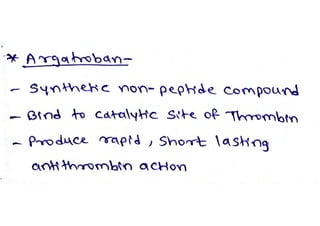 * Argatroban-
- Synthetic non-peptide compound
- Bind to catalytic site of Thrombin
- Produce rapid, short lasting
antithrombin action